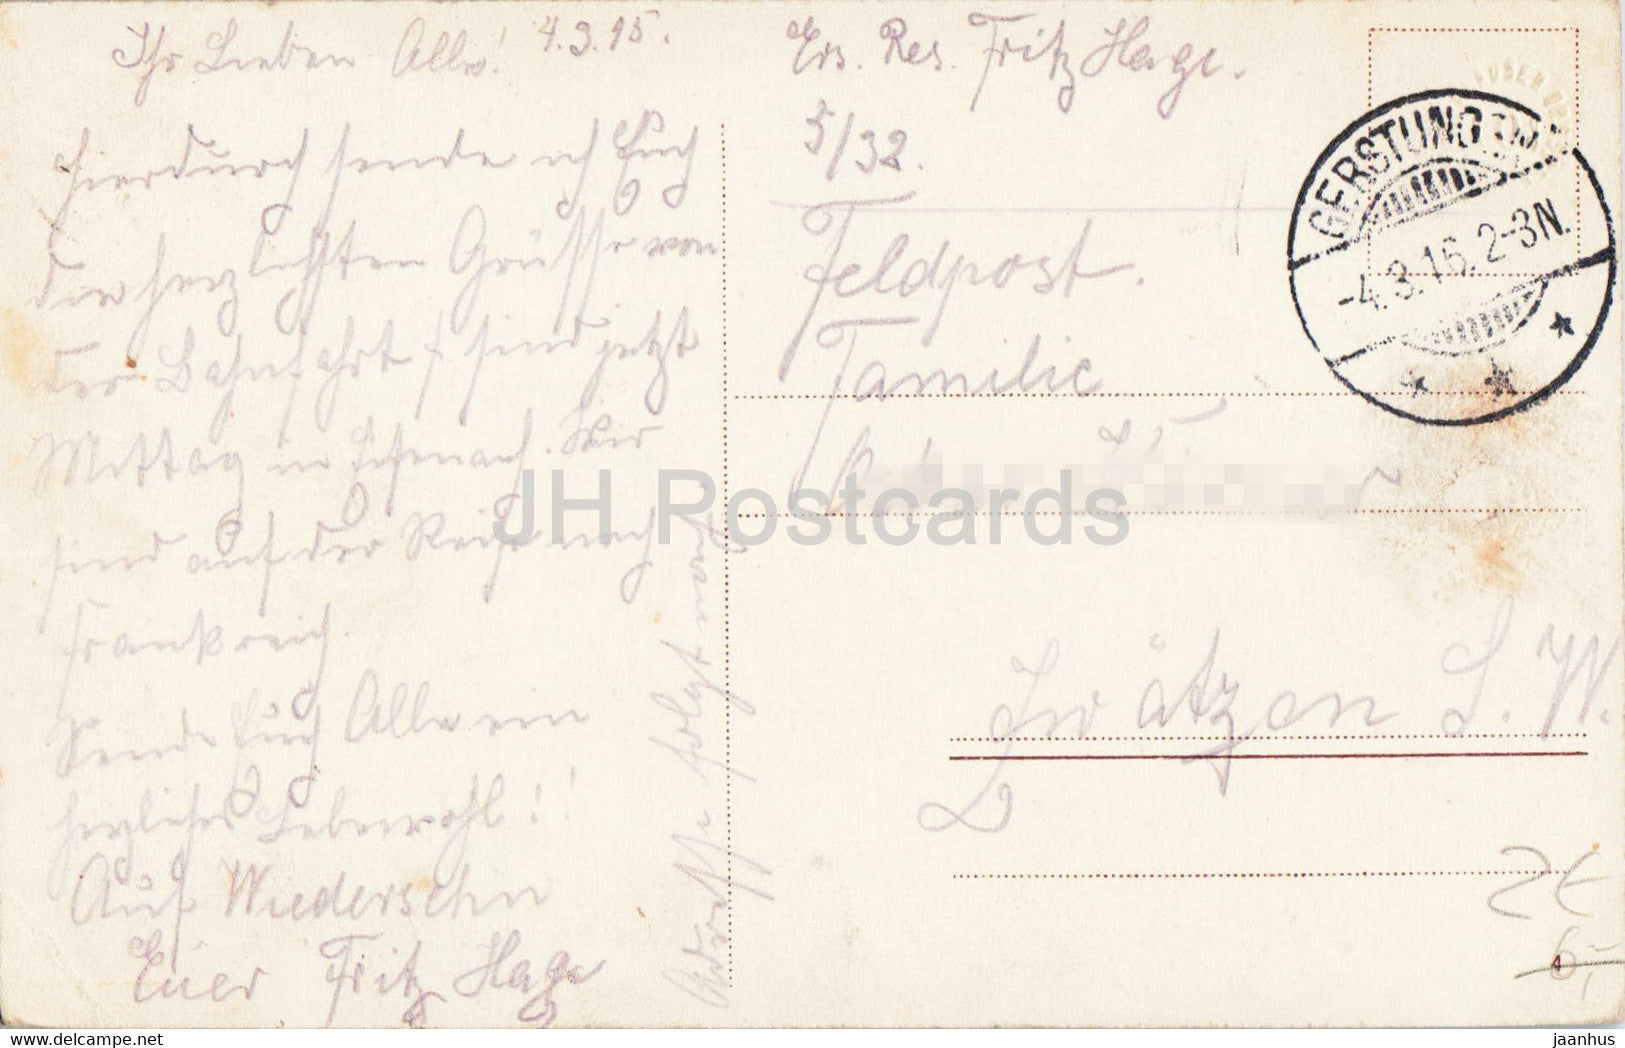 Ihr Lieben Alle! 4.3.15.
Hierdurch sende ich Euch
die herzlichsten Grüsse von
der Bahnfahrt sind jetzt
Mittag in Eisenach. Wir
sind auf der Reise nach
Frankreich.
Sende Euch Alle ein
herzliches Lebewohl!!
Auf Wiedersehn
Euer Fritz Hage
Adresse folgt nach
Ers. Res. Fritz Hage.
5/32.
Feldpost.
Familie
Zwätzen S. W.
GERSTUNGEN
-4.3.16. 2-3N.
JH Postcards
2€
6,-
delcampe.net
jaanhus